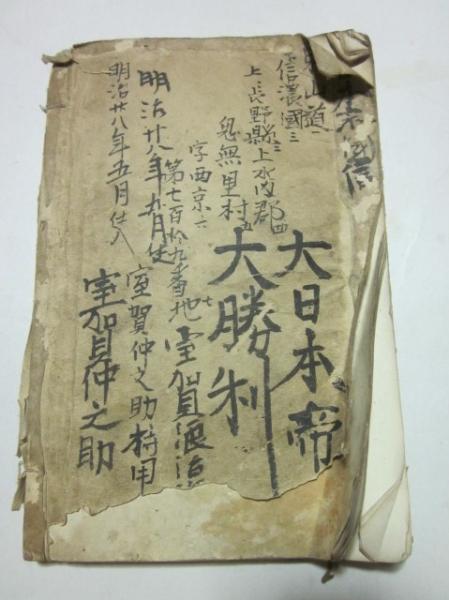 山道一
信濃國三
上長野縣三上水内郡四
鬼無里村五
字西京六
第七百拾九番地七
大日本帝
大勝利
室賀
明治廿八年五月仕
室賀仲之助持用
明治廿八年五月仕入
室賀仲之助